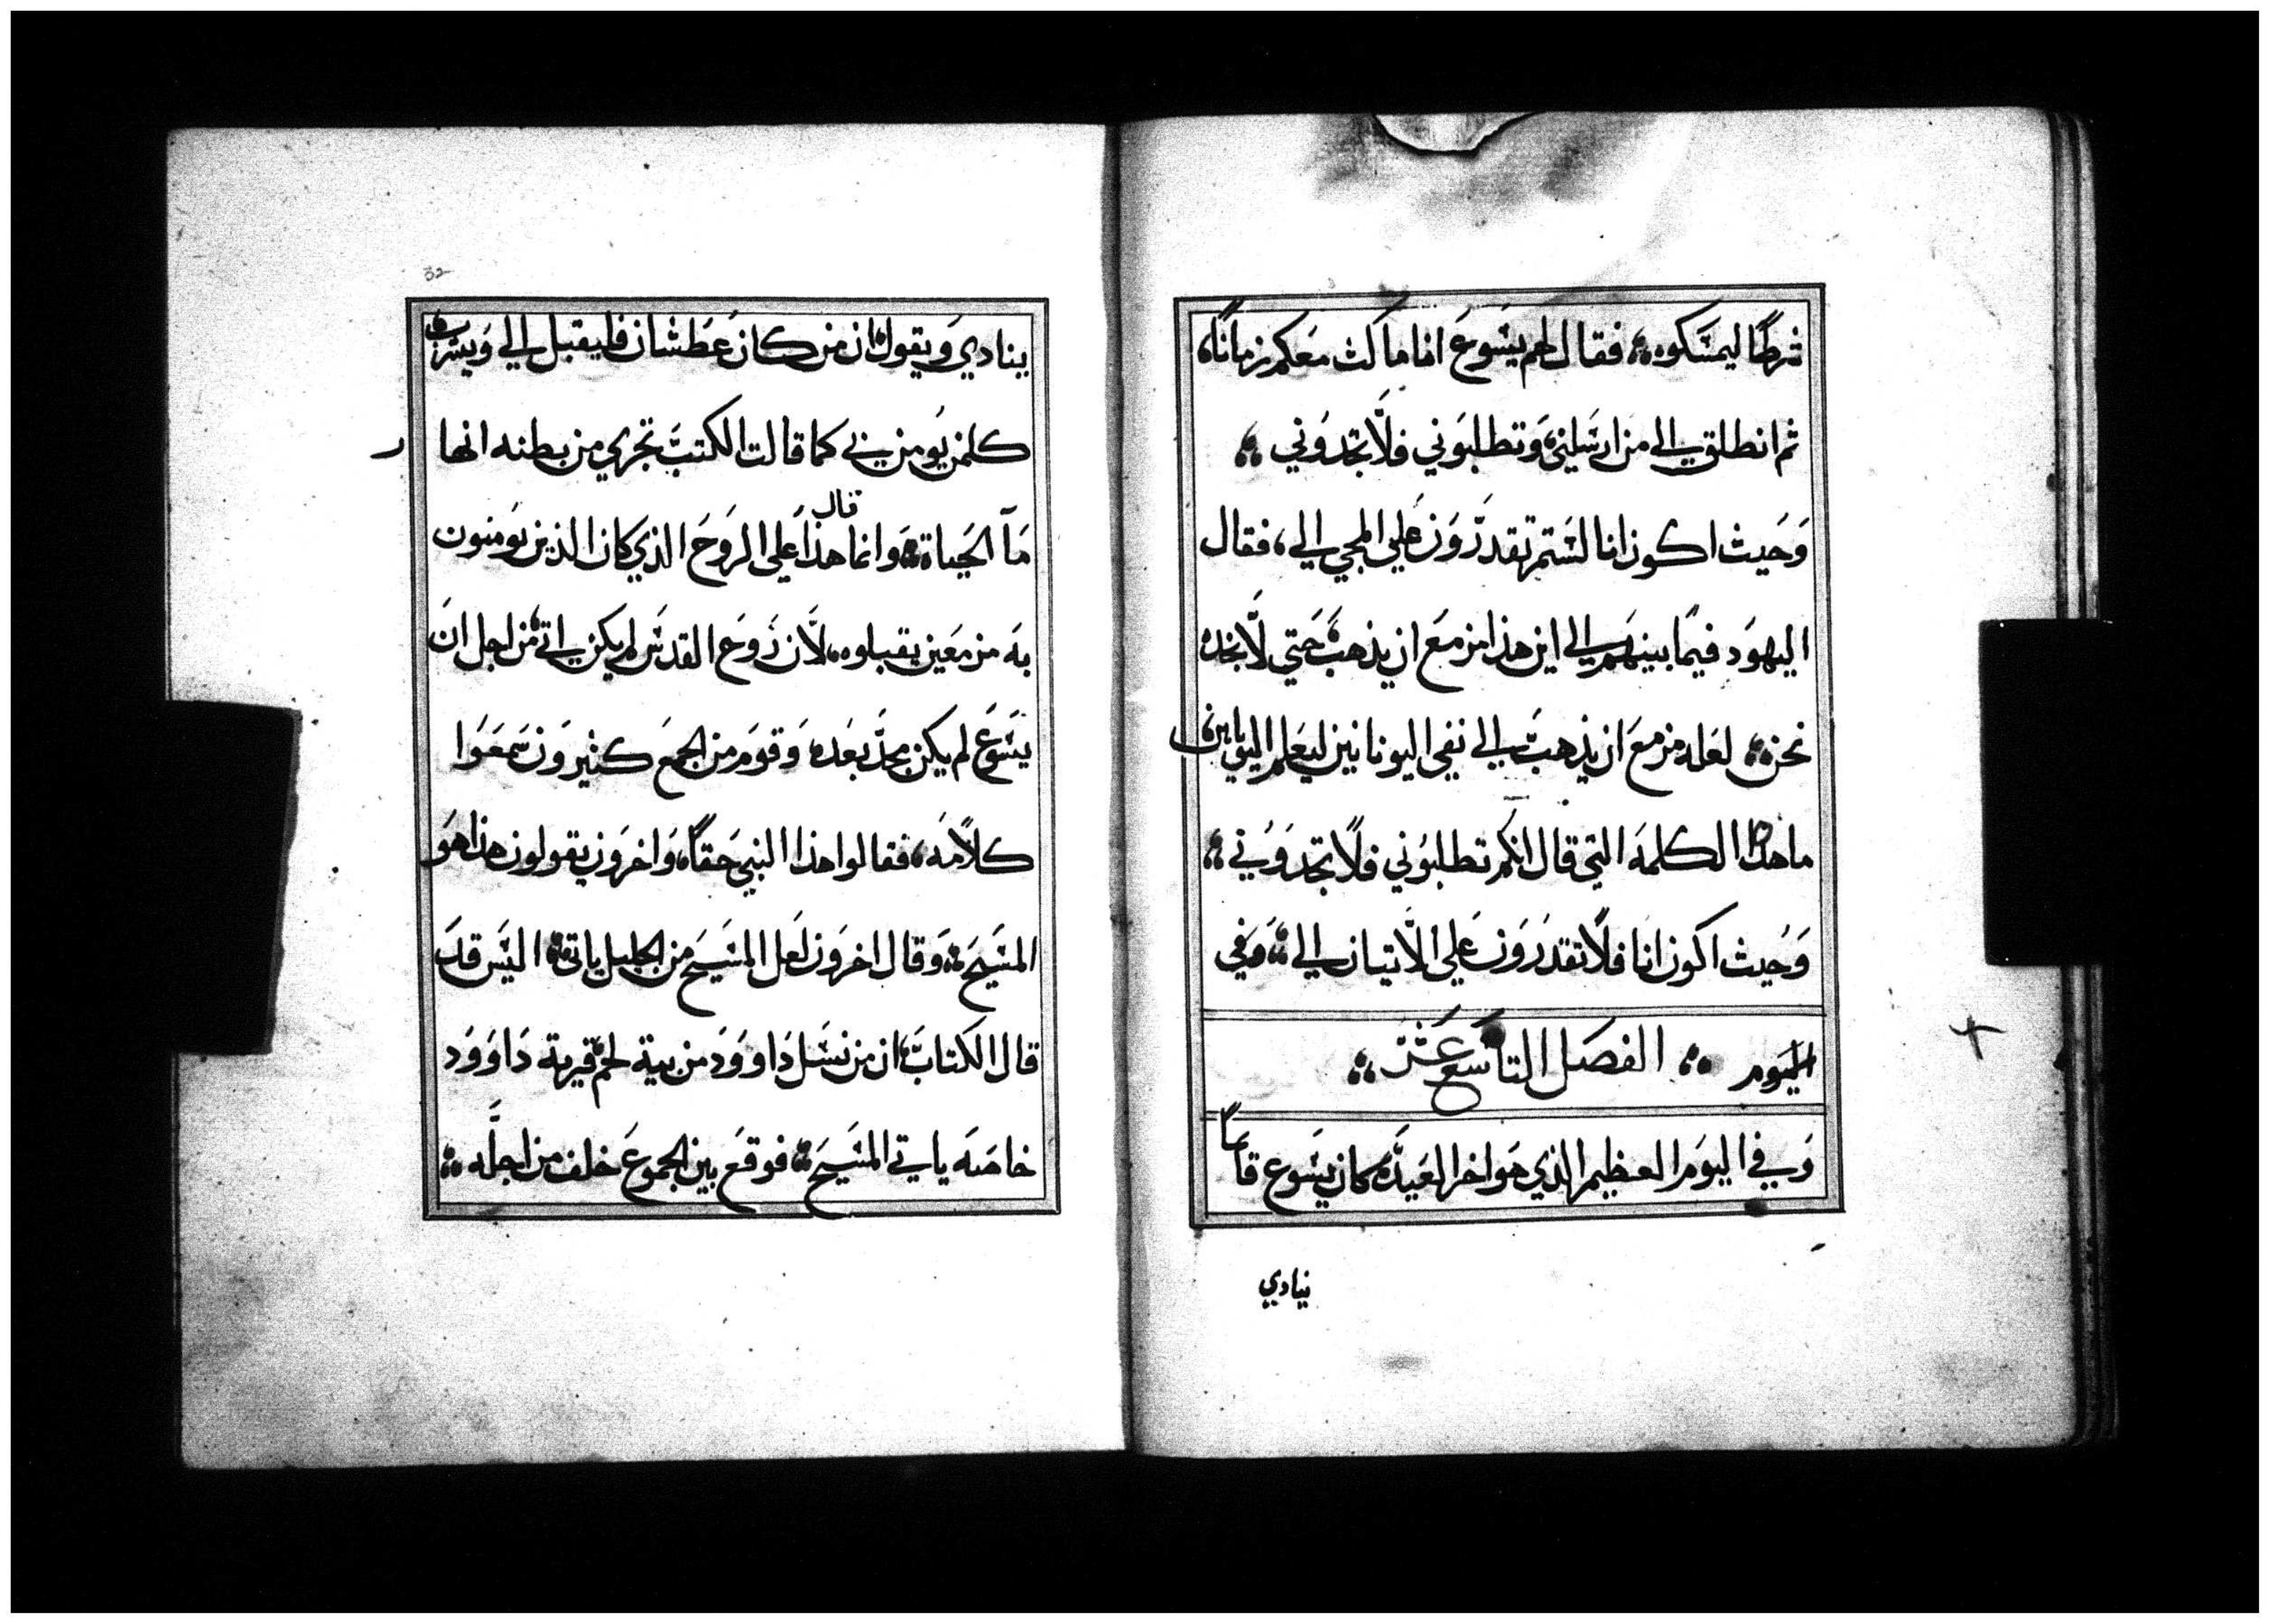 شرطًا ليمسكوه؞ فقال لهم يسوع انا ماكث معكم زمانًا،
ثم انطلق الي من ارسلني، وتطلبوني فلا تجدوني ؞
وحيث اكون انا لستم تقدرون علي المجي الي، فقال
اليهود فيما بينهم الي اين هذا مزمع ان يذهب حتي لا نجده
نحن؞ لعله مزمع ان يذهب الي نفي اليونانيين ليعلم اليونانين
ما هذا الكلمه التي قال انكم تطلبوني فلا تجدوني ؞
وحيث اكون انا فلا تقدرون علي الاتيان الي ؞ وفي
اليوم ؞ الفصل التاسع عشر ؞
وفي اليوم العظيم الذي هو اخر العيد، كان يسوع قاما
نيادي
32
ينادي ويقول، ان من كان عطشان فليقبل الي ويشرب،
كلمن يومن بي كما قالت الكتب تجري من بطنه انها
ر
قال
مآ الحياة؞ وانما هذا علي الروح الذي كان الذين يومنون
به من معين يقبلوه، لان روح القدس لم يكن اتي، من اجل ان
يسوع لم يكن مجد بعده، وقوم من الجمع كثيرون سمعوا
كلامه، فقالوا هذا النبي حقًا، واخرون يقولون هذا هو
المسيح؞ وقال اخرون لعل المسيح من الجليل ياتي؞ اليس قد
قال الكتاب، ان من نسل داوود من بية لحم، قرية داوود
خاصه ياتي المسيح؞ فوقع بين الجموع خلف من اجله ؞